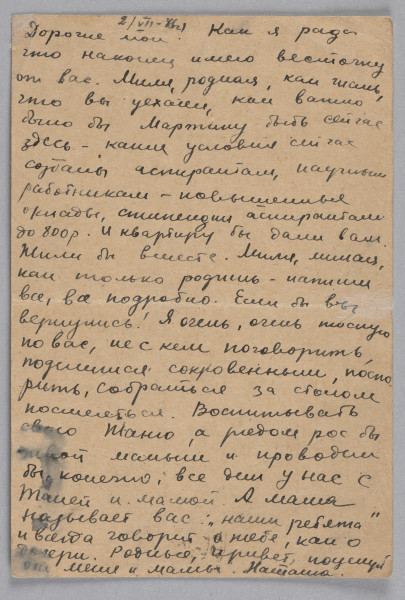 2/VII-46г
Дорогие мои! Как я рада
что наконец имею весточку
от вас. Миля, родная, как жаль,
что вы уехали, как важно
было бы Мартину быть сейчас
здесь - какие условия сейчас
созданы аспирантам, научным
работникам - повышенные
оклады, стипендии аспирантам
до 800р. И квартиру бы дали вам.
Жили бы вместе. Миля, милая,
как только родишь - напиши
все, все подробно. Если бы вы
вернулись! Я очень, очень тоскую
по вас, не с кем поговорить,
поделиться сокровенным, поспо
рить, собраться за столом
посмеяться. Воспитывать
свою Таню, а рядом рос бы
твой малыш и проводил
бы, конечно, все дни у нас с
Таней и мамой. А мама
называет вас: "наши ребята"
и всегда говорит о тебе, как о
дочери. Родные, привет, поцелуй
от меня и мамы. Наташа.